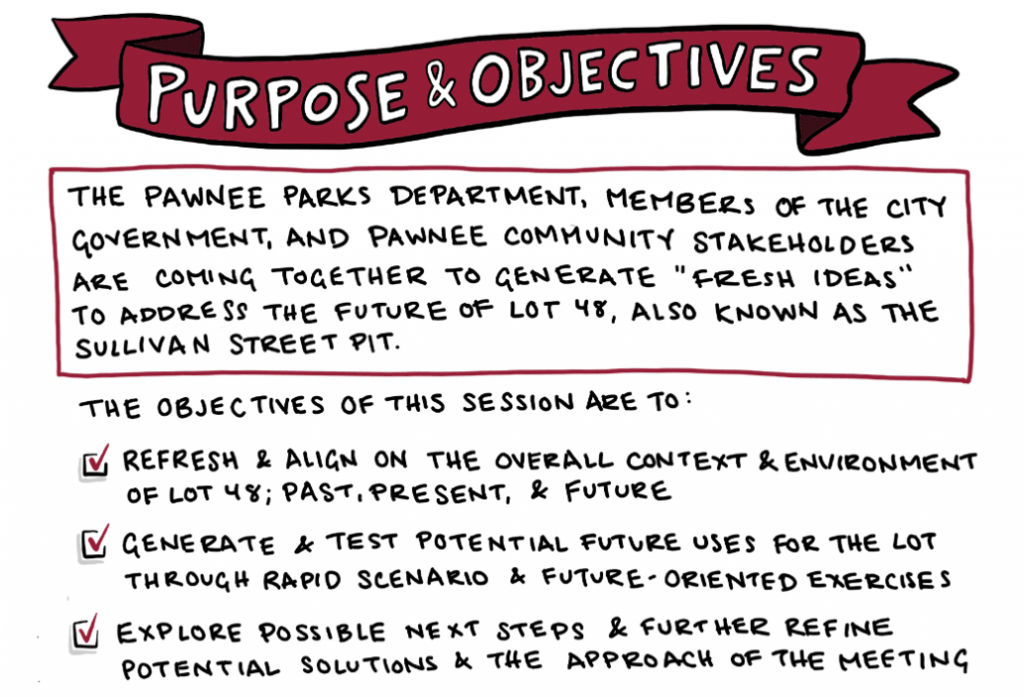 PURPOSE & OBJECTIVES
THE PAWNEE PARKS DEPARTMENT, MEMBERS OF THE CITY
GOVERNMENT, AND PAWNEE COMMUNITY STAKEHOLDERS
ARE COMING TOGETHER TO GENERATE "FRESH IDEAS"
TO ADDRESS THE FUTURE OF LOT 48, ALSO KNOWN AS THE
SULLIVAN STREET PIT.
THE OBJECTIVES OF THIS SESSION ARE TO:
REFRESH & ALIGN ON THE OVERALL CONTEXT & ENVIRONMENT
OF LOT 48; PAST, PRESENT, & FUTURE
GENERATE & TEST POTENTIAL FUTURE USES FOR THE LOT
THROUGH RAPID SCENARIO & FUTURE-ORIENTED EXERCISES
EXPLORE POSSIBLE NEXT STEPS & FURTHER REFINE
POTENTIAL SOLUTIONS & THE APPROACH OF THE MEETING